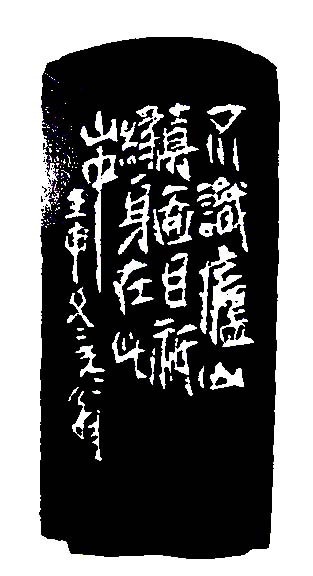 不識廬山
真面目祇
緣身在此
山中
壬申